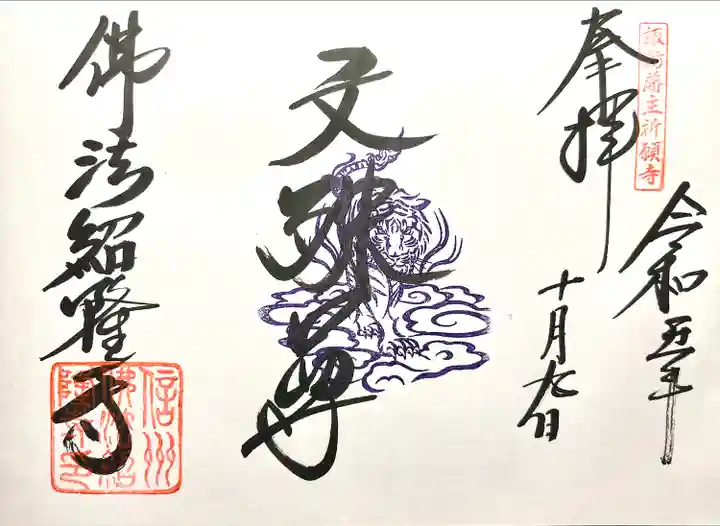 諏訪藩主祈願寺
奉拝
令和五年
十月九日
文殊尊
佛法紹隆寺
信州佛法紹隆寺之印